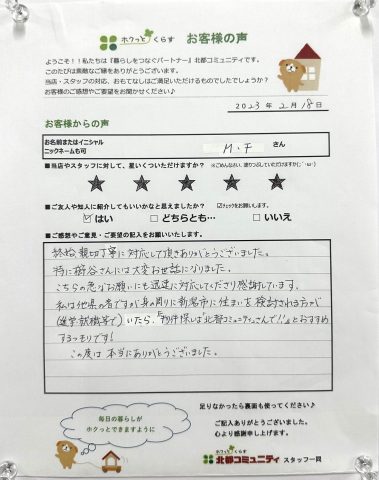 ホクっとくらす お客様の声
ようこそ！！私たちは『暮らしをつなぐパートナー』北都コミュニティです。
このたびは素敵なご縁をありがとうございます。
当店・スタッフの対応、おもてなしはご満足いただけるものでしたでしょうか？
お客様のご感想やご要望をお聞かせください♪
2023年 2月 18日
お客様からの声
お名前またはイニシャル
ニックネームも可
M・F さん
■当店やスタッフに対して、星いくついただけますか？
★ ★ ★ ★ ★
■ご友人や知人に紹介してもいいかなと思えましたか？ ☑チェックをお願いします。
☑はい □どちらとも… □いいえ
■ご感想やご意見・ご要望の記入をお願いいたします。
終始、親切丁寧に対応して頂きありがとうございました。
特に 谷さんには大変お世話になりました。
こちらの急なお願いにも迅速に対応してくださり感謝しています。
私は他県の者ですが身の周りに新潟市に住まいを検討される方が
(進学・就職等で)いたら、『物件探しは"北都コミュニティさんで!!』とおすすめ
するつもりです!
この度は本当にありがとうございました。
足りなかったら裏面も使ってください♪
毎日の暮らしが
ホクっとできますように
ご記入ありがとうございました。
心より感謝申し上げます。
ホクっとくらす
北都コミュニティ スタッフ一同